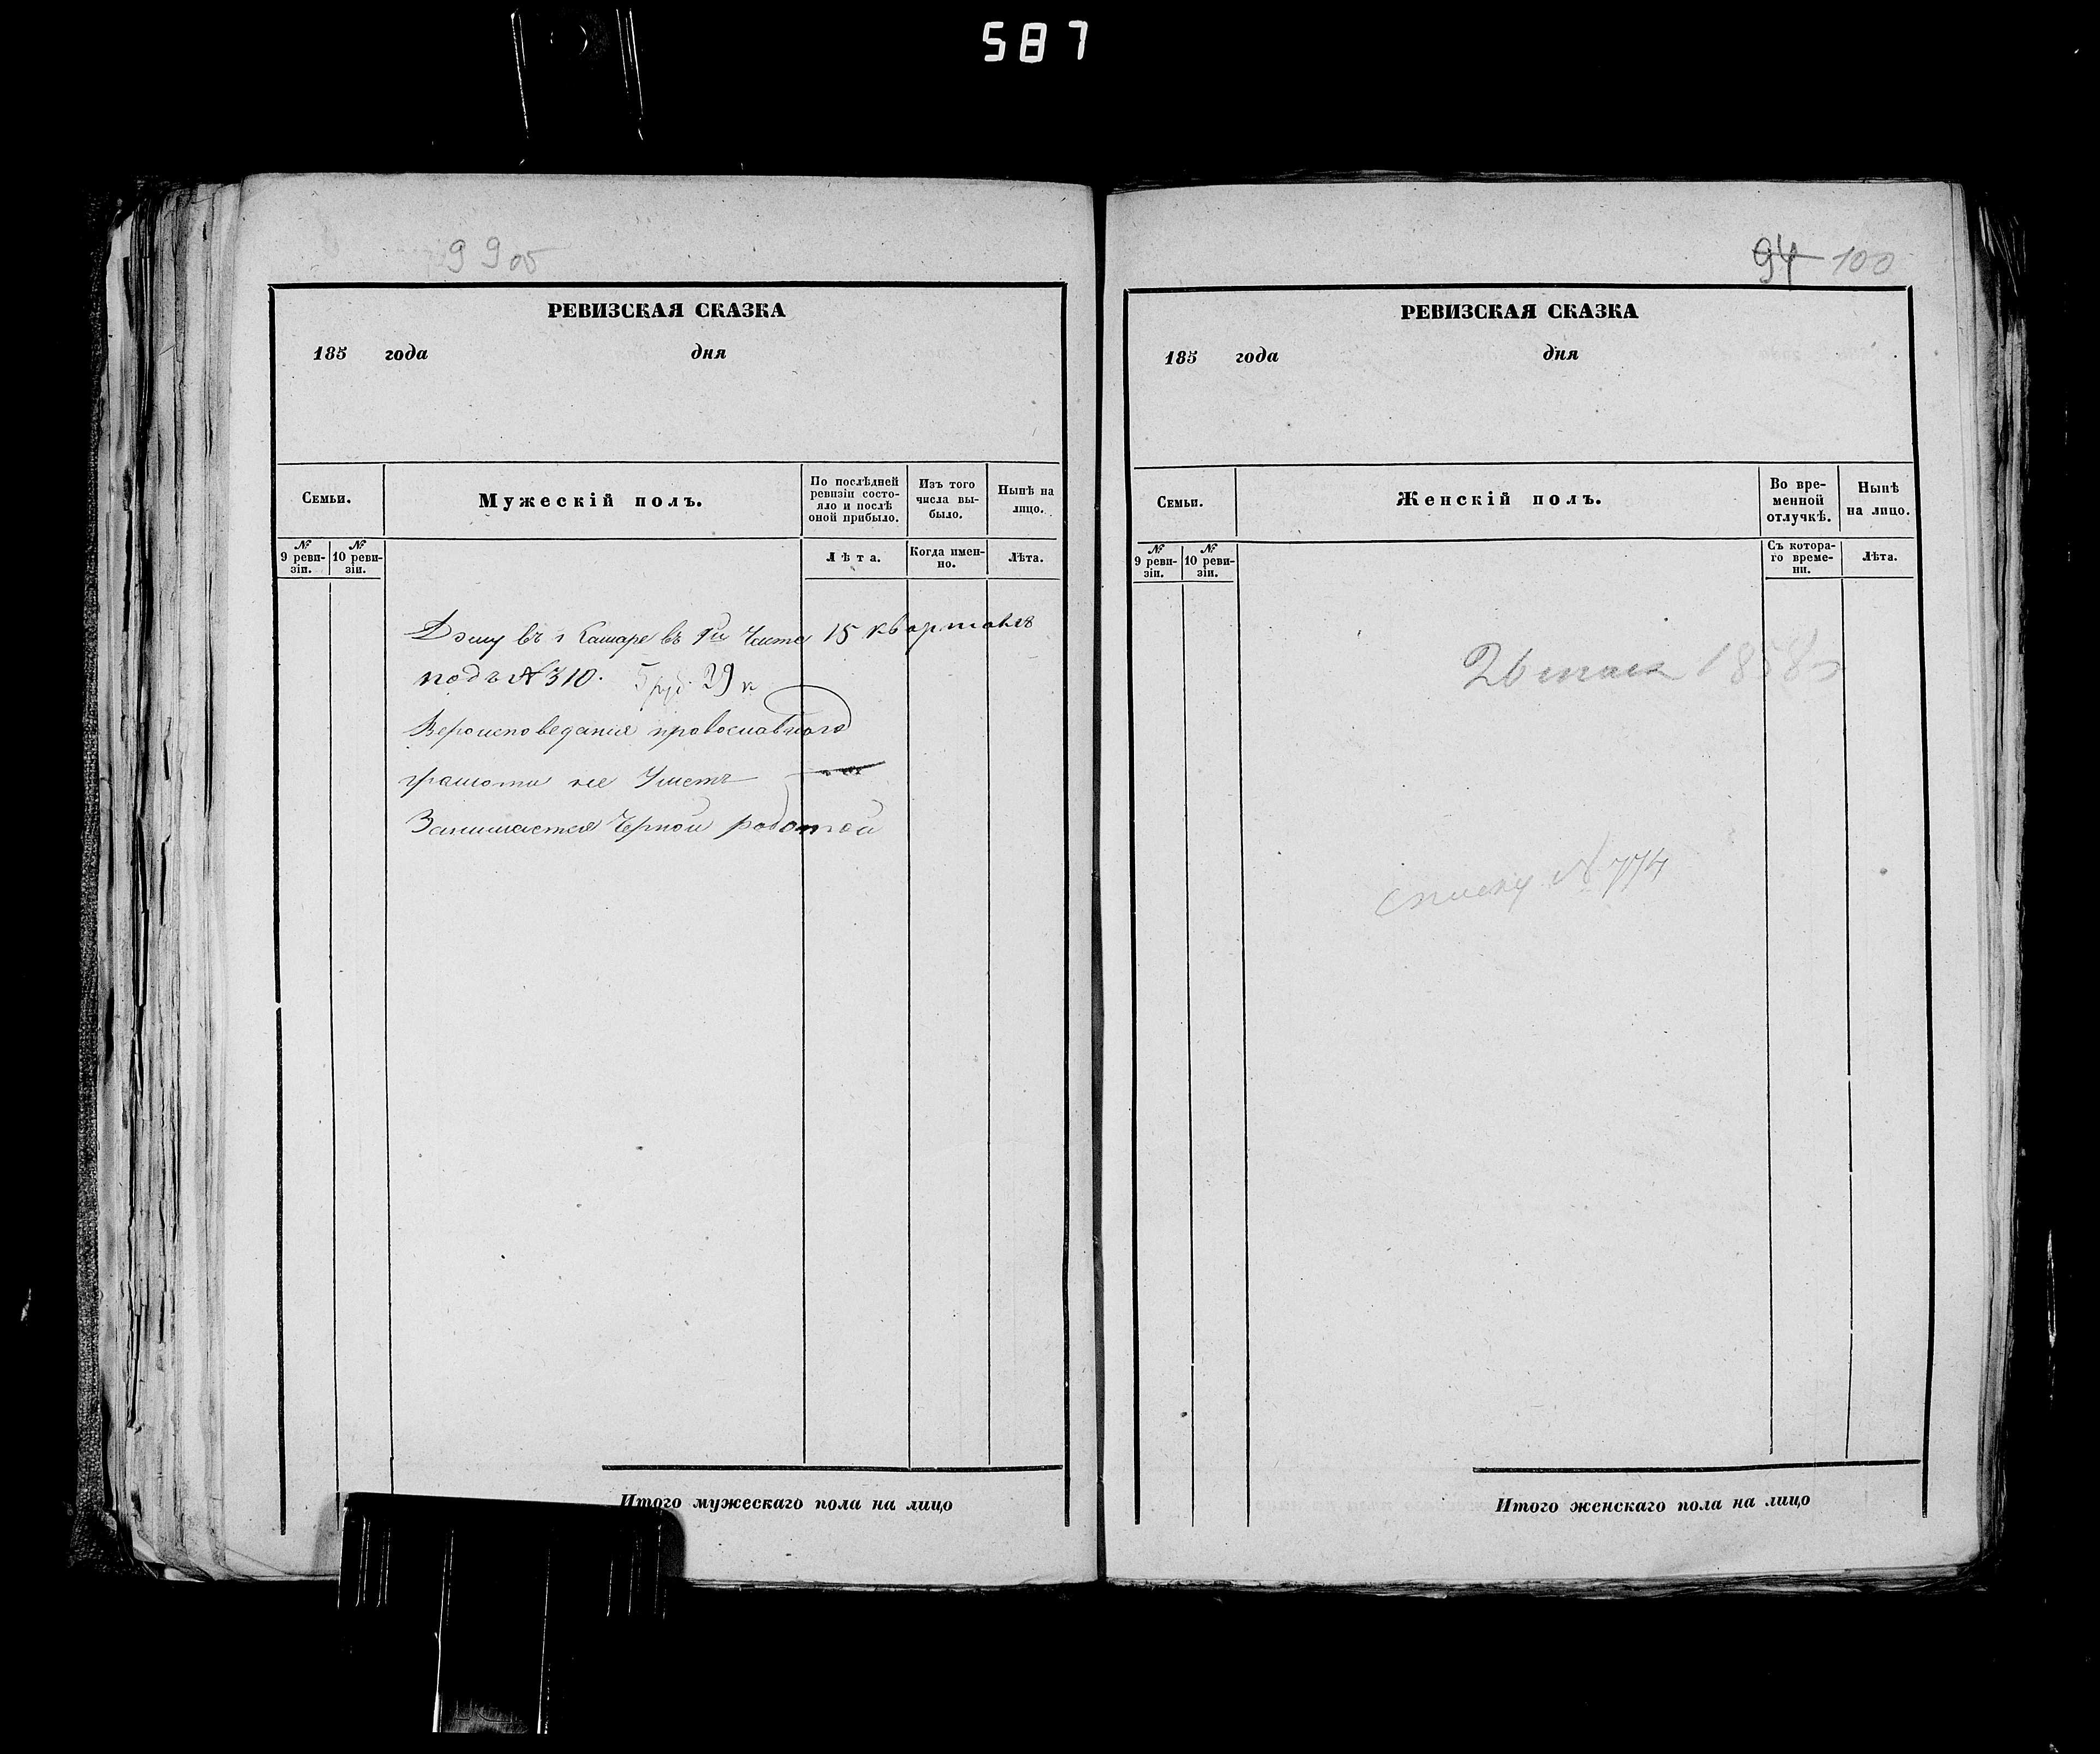 587
99 об
РЕВИЗСКАЯ СКАЗКА
185 года дня
Семьи. Мужескій полъ. По послѣдней ревизіи состояло и послѣ оной прибыло. Изъ того числа выбыло. Нынѣ на лицо.
№ 9 ревизіи. № 10 ревизіи. Лѣта. Когда именно. Лѣта.
Дому въ г Самаре въ 1й Части 15 квартала
подъ №310. 5 руб. 29 к
Вероисповедания православного
грамоти не Умеетъ
Занимается Черной работой
Итого мужескаго пола на лицо
94 100
РЕВИЗСКАЯ СКАЗКА
185 года дня
Семьи. Женскій полъ. Во временной отлучкѣ. Нынѣ на лицо.
№ 9 ревизіи. № 10 ревизіи. Съ котораго времени. Лѣта.
26 мая 1858 г
списку №774
Итого женскаго пола на лицо